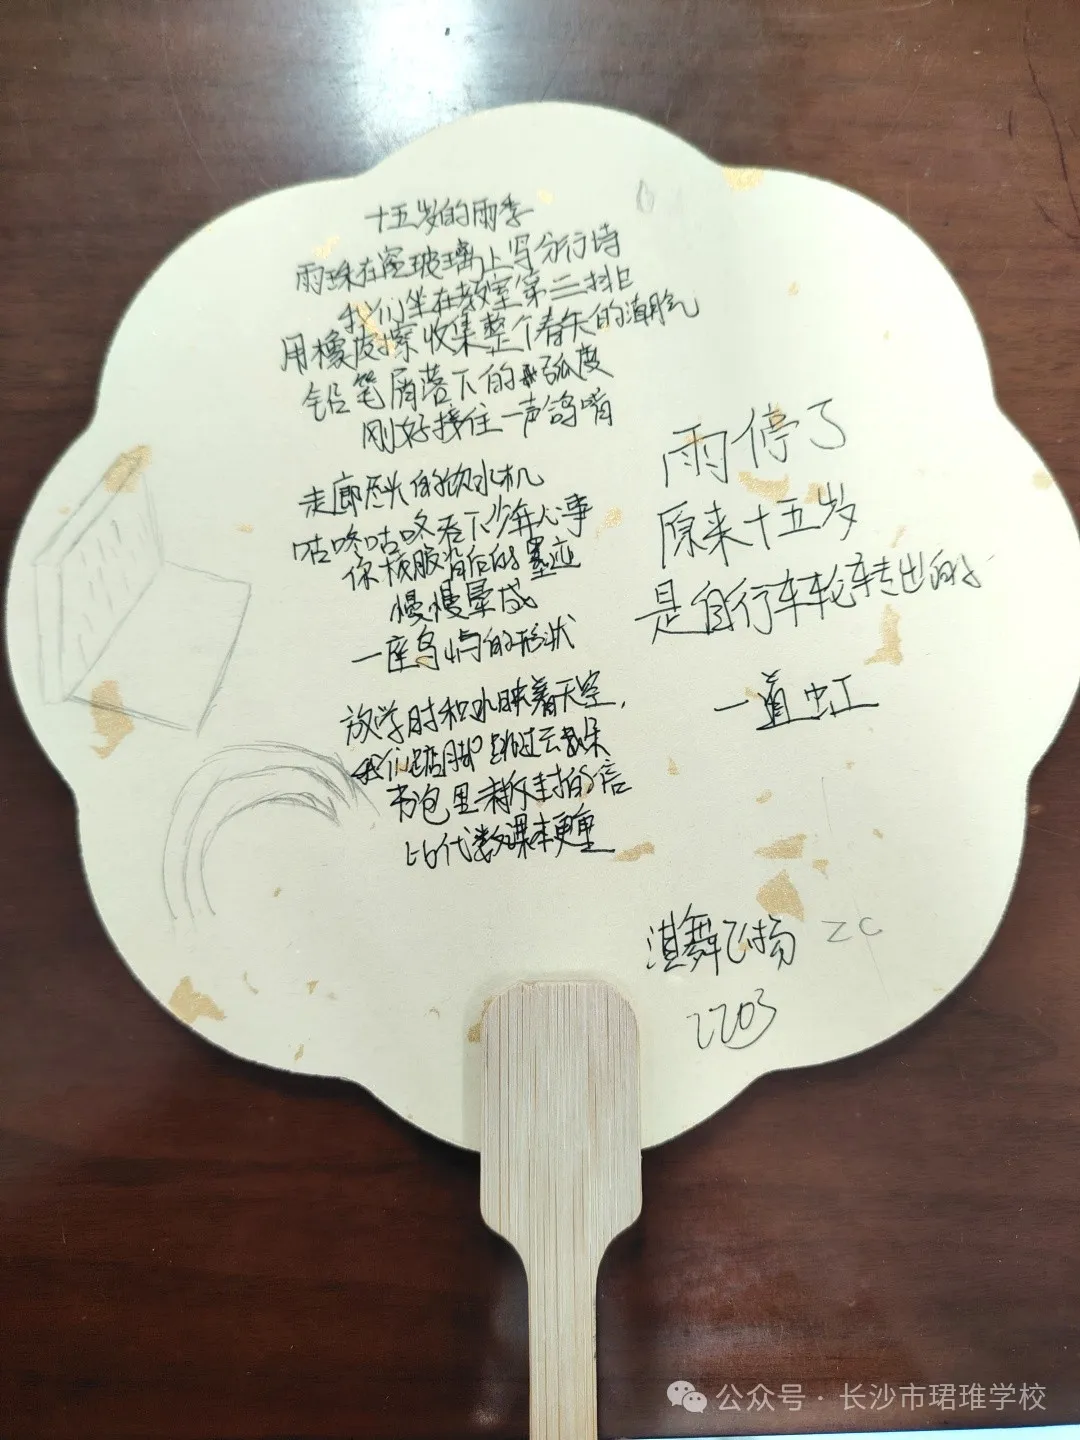 十五岁的雨季
雨珠在窗玻璃上写分行诗
我们坐在教室第三排
用橡皮擦收集整个春天的潮气
铅笔屑落下的弧度
刚好接住一声鸽哨
走廊尽头的饮水机
咕咚咕咚吞下少年心事
你校服背后的墨迹
慢慢晕成
一座岛屿的形状
放学时积水映着天空,
我们踮脚跳过云朵
书包里未拆封的信
比代数课本更重
雨停了
原来十五岁
是自行车轮转出的
一道虹
淇舞飞扬 ZC
2203
公众号·长沙市珺琟学校